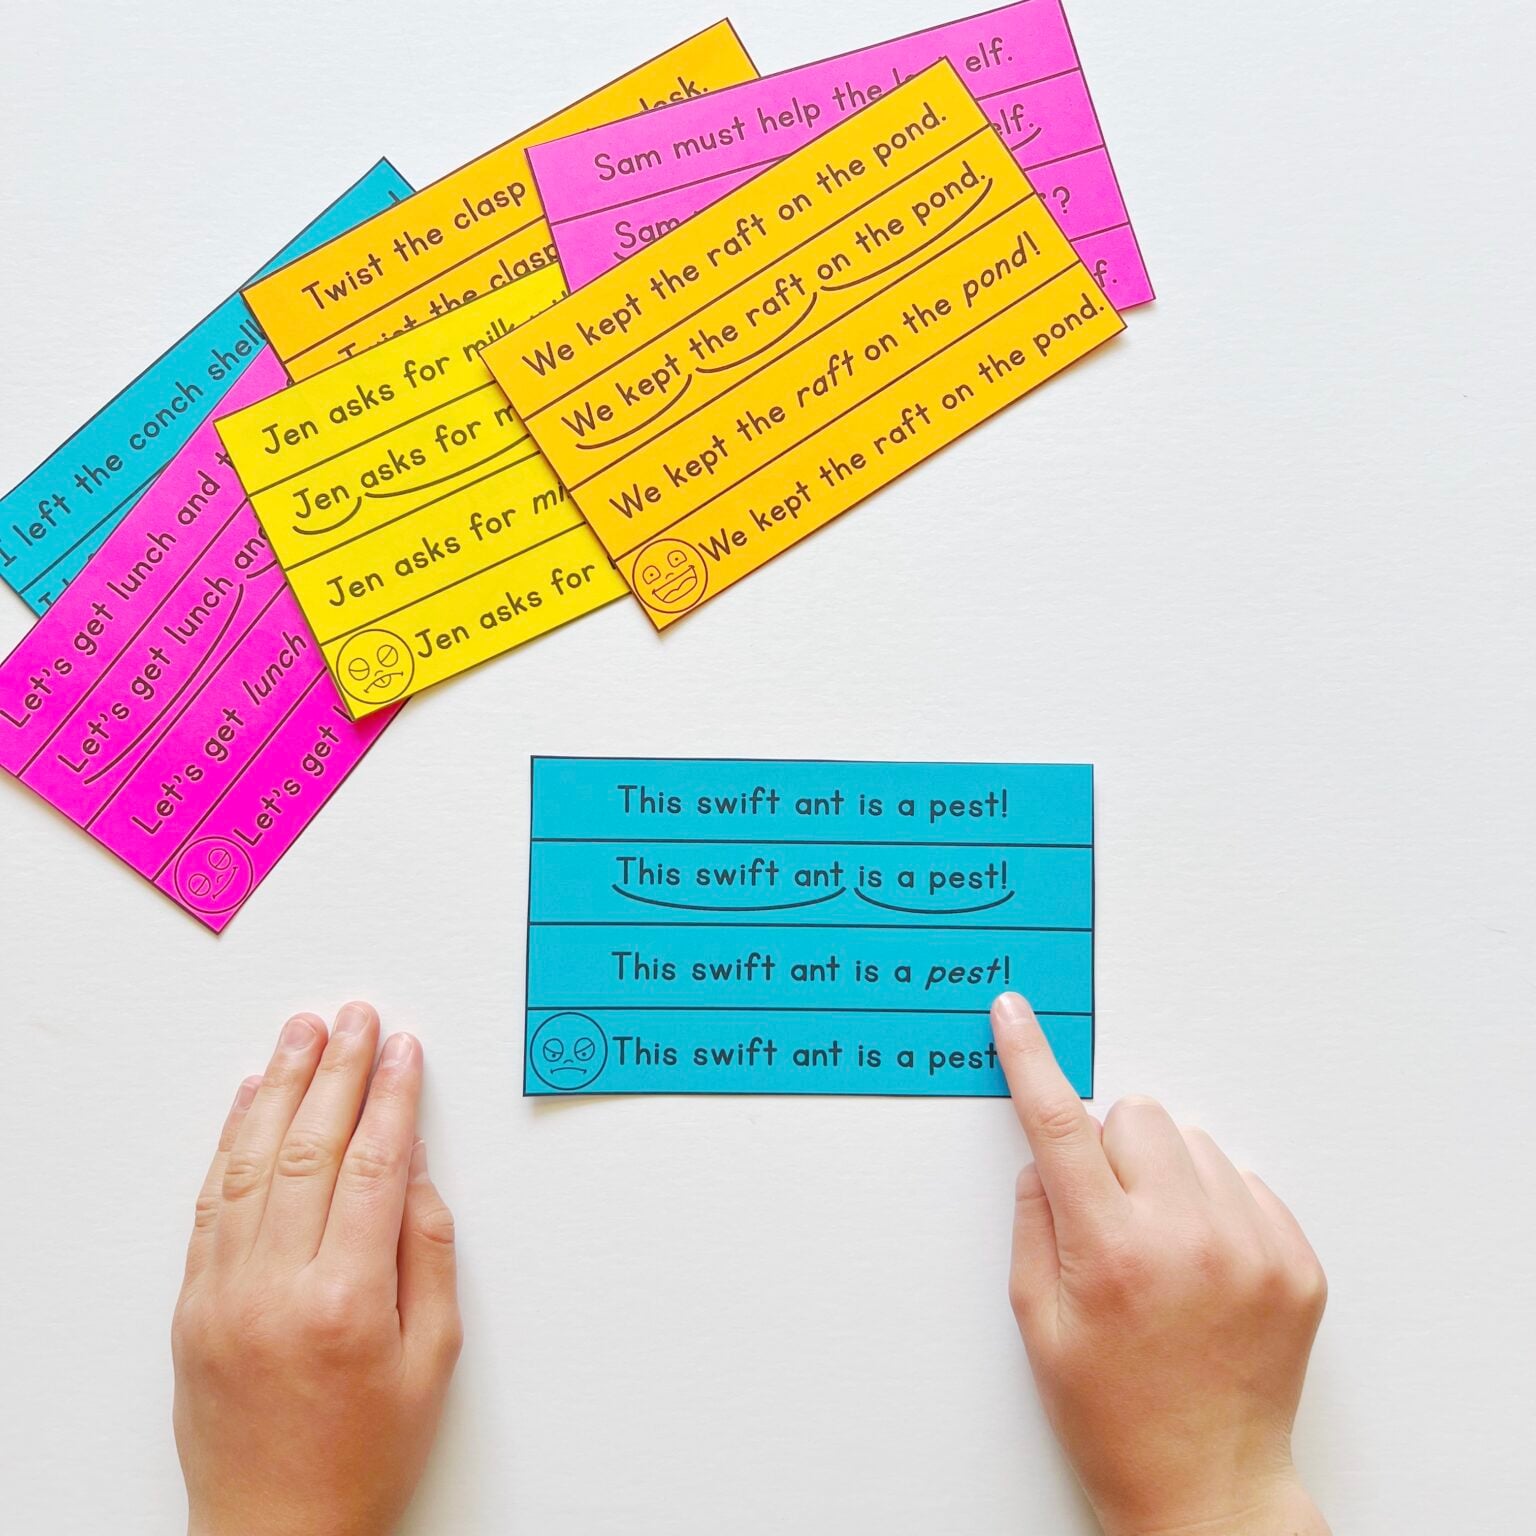 I left the conch shell
Twist the clasp
Twist the clasp
Sam must help the elf.
Sam
Let's get lunch and
Let's get lunch
Let's get lunch
Let's get
Jen asks for milk
Jen asks for
Jen asks for
Jen asks for
We kept the raft on the pond.
We kept the raft on the pond.
We kept the raft on the pond!
We kept the raft on the pond.
This swift ant is a pest!
This swift ant is a pest!
This swift ant is a pest!
This swift ant is a pest